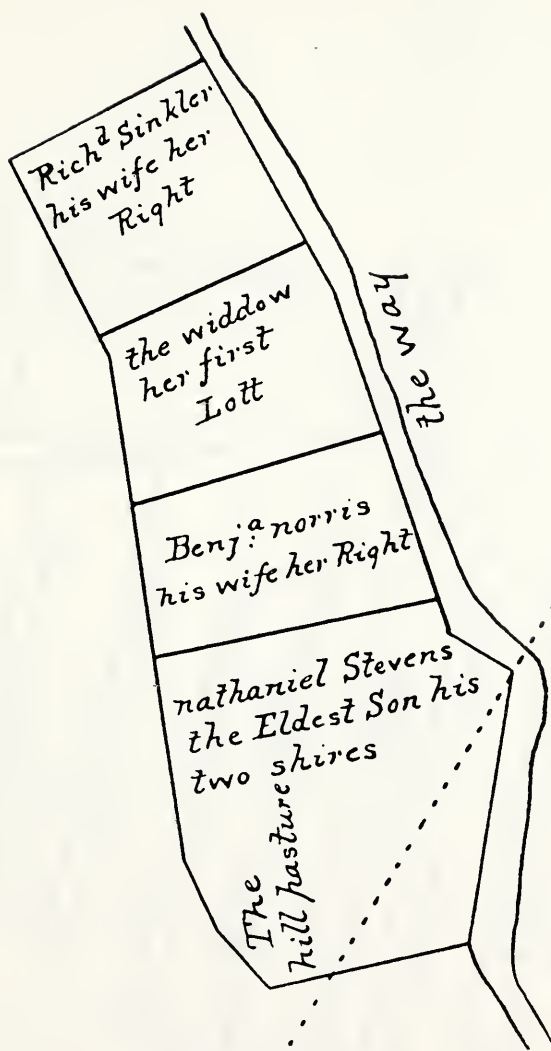 Richᵈ Sinkler
his wife her
Right
the widdow
her first
Lott
the way
Benjᵃ: norris
his wife her Right
nathaniel Stevens
the Eldest Son his
two shires
The
hill pasture